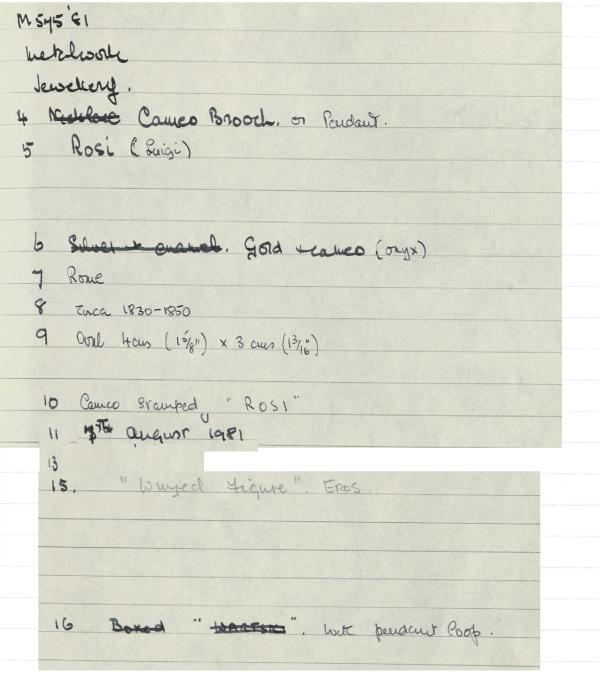 M 545'81
Metalwork
Jewellery.
4 Necklace Cameo Brooch. or Pendant.
5 Rosi (Luigi)
6 Silver + enamel. Gold + cameo (onyx)
7 Rome
8 Circa 1830-1850
9 Oval 4cms (1 5/8") x 3 cms (1 3/16")
10 Cameo stamped "ROSI"
11 August 1981
13
15. "Winged Figure". EROS.
16 Boxed " WARTSKI ". with pendant loop.